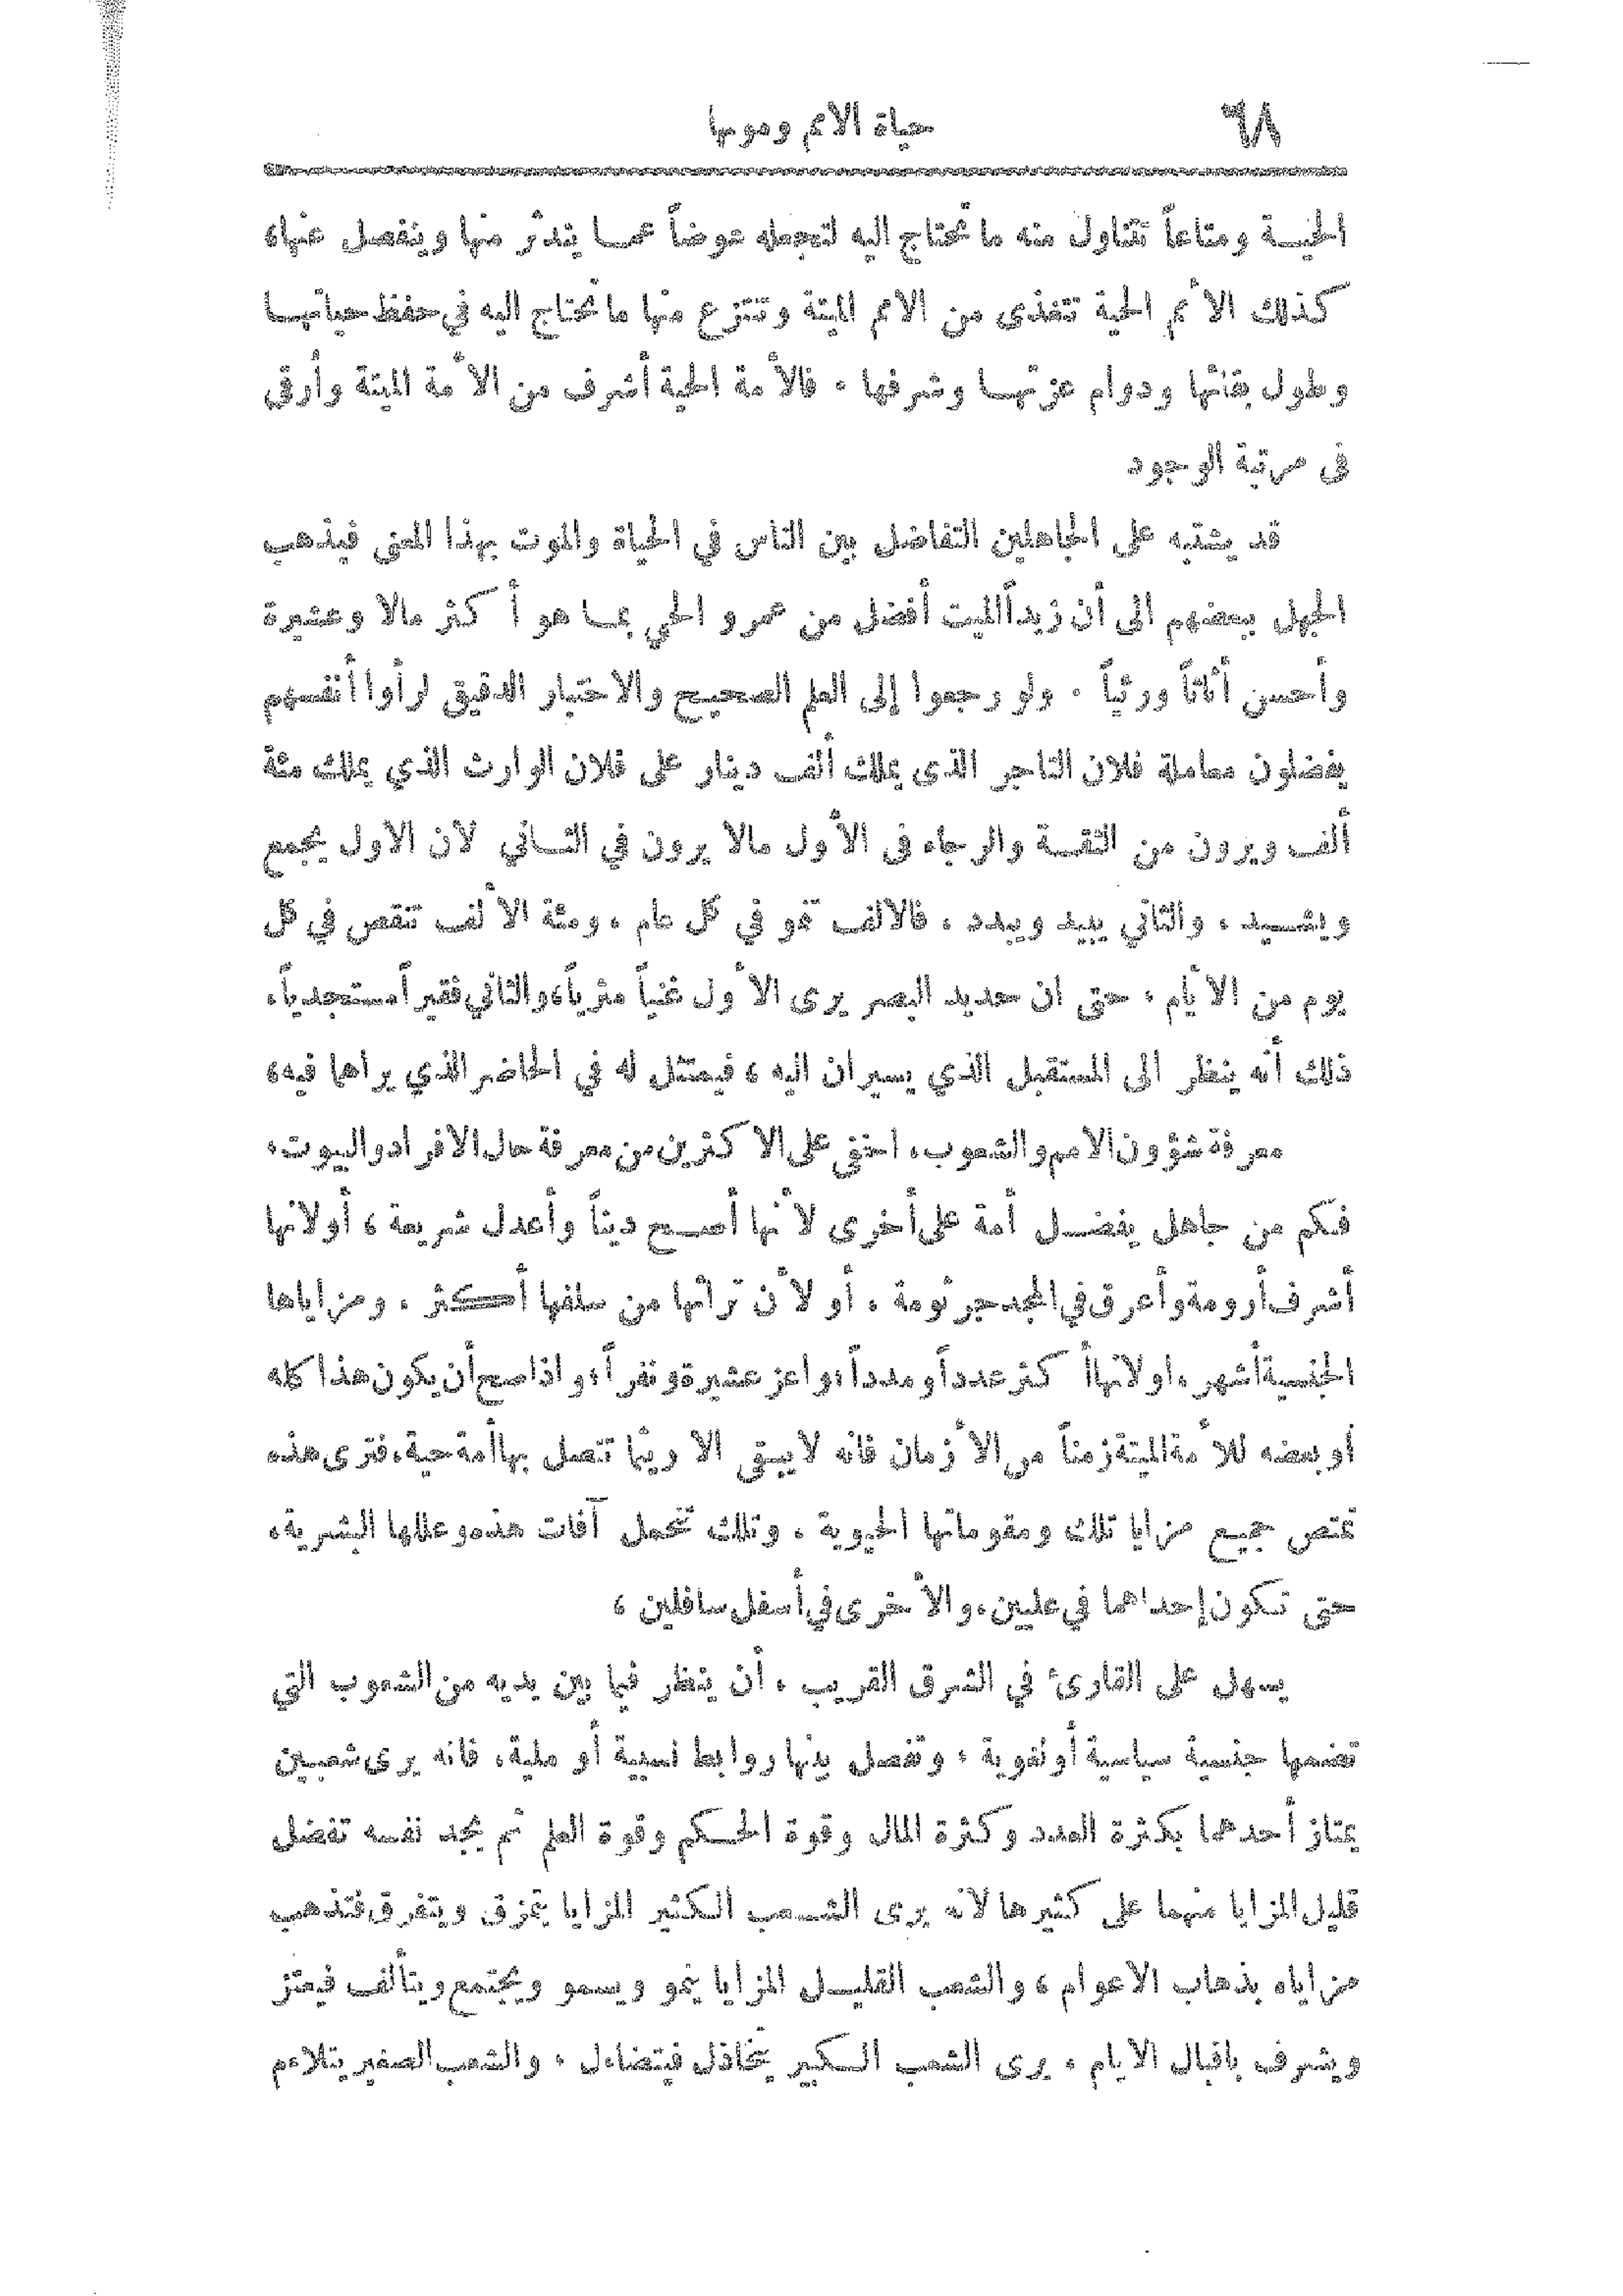 ٦٨
حياة الامم وموتها
الحيـة ومتاعاً تتناول منه ما تحتاج اليه لتجعله عوضاً عمـا يندثر منها وينفصل عنها،
كذلك الأمم الحية تتغذى من الامم الميتة وتنتزع منها ما تحتاج اليه في حفظ حياتهـا
وطول بقائها ودوام عزتهـا وشرفها . فالأمة الحية أشرف من الأمة الميتة وأرقى
فى مرتبة الوجود
قد يشتبه على الجاهلين التفاضل بين الناس في الحياة والموت بهذا المعنى فيذهب
الجهل ببعضهم الى أن زيداً الميت أفضل من عمرو الحي بمـا هو أكثر مالا وعشيرة
وأحسن أثاثاً ورئياً . ولو رجعوا إلى العلم الصحيح والاختبار الدقيق لرأوا أنفسهم
يفضلون معاملة فلان التاجر الذى يملك ألف دينار على فلان الوارث الذي يملك مئة
ألف ويرون من الثقـة والرجاء فى الأول مالا يرون في الثـاني لان الاول يجمع
ويشـيد ، والثاني يبيد ويبدد ، فالالف تنمو في كل عام ، ومئة الألف تنقص في كل
يوم من الأيام ، حتى ان حديد البصر يرى الأول غنياً مثرياً، والثاني فقيراً مستجدياً،
ذلك أنه ينظر الى المستقبل الذي يسيران اليه ، فيمتثل له في الحاضر الذي يراهما فيه،
معرفة شؤون الامم والشعوب، اخفى على الاكثرين من معرفة حال الافراد والبيوت،
فكم من جاهل يفضـل أمة على أخرى لأنها أصـح ديناً وأعدل شريعة ، أولانها
أشرف أرومة وأعرق في المجد جرثومة ، أو لأن تراثها من سلفها أكثر ، ومزاياها
الجنسية أشهر، اولانها أكثر عدداً ومدداً، واعز عشيرة ونفراً، واذا صح أن يكون هذا كله
أو بعضه للأمة الميتة زمناً من الأزمان فانه لا يبقى الا ريثما تتصل بها أمة حية، فترى هذه
تمتص جميع مزايا تلك ومقوماتها الحيوية ، وتلك تتحمل آفات هذه وعللها البشرية،
حتى تكون إحداهما في عليين، والأخرى في أسفل سافلين ،
يسهل على القارئ في الشرق القريب ، أن ينظر فيما بين يديه من الشعوب التي
تضمها جنسية سياسية أو لغوية ، وتفصل بينها روابط نسبية أو ملية، فانه يرى شعبين
يمتاز أحدهما بكثرة العدد وكثرة المال وقوة الحـكم وقوة العلم ثم يجد نفسه تفضل
قليل المزايا منهما على كثيرها لانه يرى الشـعب الـكثير المزايا يتمزق ويتفرق فتذهب
مزاياه بذهاب الاعوام ، والشعب القليـل المزايا ينمو ويسمو ويجتمع ويتألف فيعتز
ويشرف باقبال الايام ، يرى الشعب الـكبير يتخاذل فيتضاءل ، والشعب الصغير يتلاءم